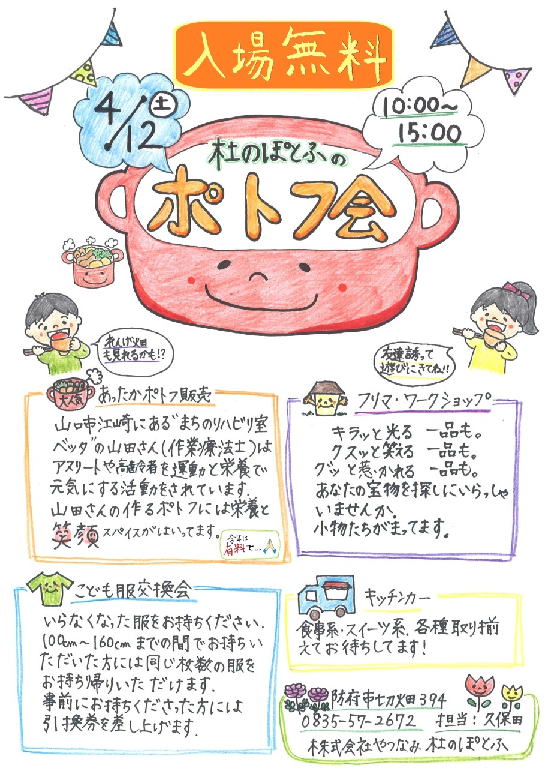 入場無料
4/12 土
10:00〜
15:00
杜のぽとふの
ポトフ会
れんげ畑
も見れるかも!?
友達誘って
遊びにきてね!!
大人気
あったかポトフ販売
山口市江崎にある"まちのリハビリ室
ベッタ"の山田さん(作業療法士)は
アスリートや高齢者を運動と栄養で
元気にする活動をされています。
山田さんの作るポトフには栄養と
笑顔スパイスがはいってます。
有料で…
フリマ・ワークショップ
キラッと光る 一品も。
クスッと笑える 一品も。
グッと惹かれる 一品も。
あなたの宝物を探しにいらっしゃ
いませんか。
小物たちが待ってます。
こども服交換会
いらなくなった服をお持ちください。
100cm〜160cmまでの間でお持ちい
ただいた方には同じ枚数の服を
お持ち帰りいただけます。
事前にお持ちくださった方には
引換券を差し上げます。
キッチンカー
食事系・スイーツ系、各種取り揃
えてお待ちしてます!
防府市切畑394
0835-57-2672 担当:久保田
株式会社やつなみ 杜のぽとふ